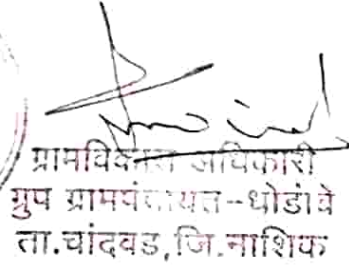 ग्रामविकास अधिकारी
ग्रुप ग्रामपंचायत-धोडांबे
ता.चांदवड, जि.नाशिक